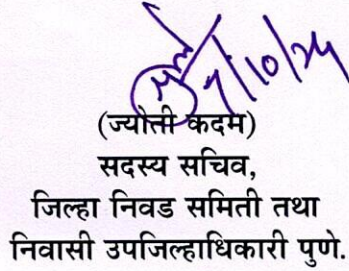 7/10/25
(ज्योती कदम)
सदस्य सचिव,
जिल्हा निवड समिती तथा
निवासी उपजिल्हाधिकारी पुणे.